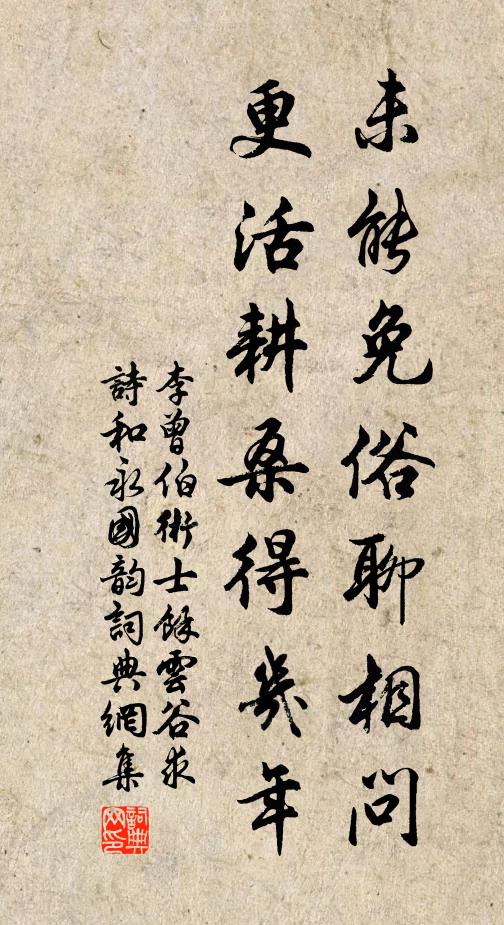 未能免俗聊相問
更活耕桑得幾年
李曾伯術士餘雲谷求
詩和永國韵詞典網集
詞典
网印